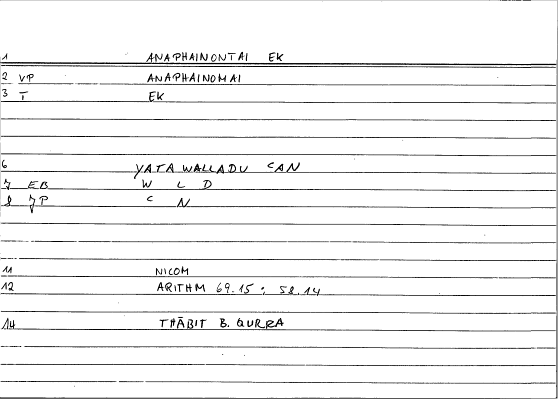 1 ANAPHAINONTAI EK
2 VP ANAPHAINOMAI
3 T EK
6 YATAWALLADU ᶜAN
7 EB W L D
8 7P ᶜ N
11 NICOM
12 ARITHM 69.15 ; 58.14
14 THĀBIT B. QURRA